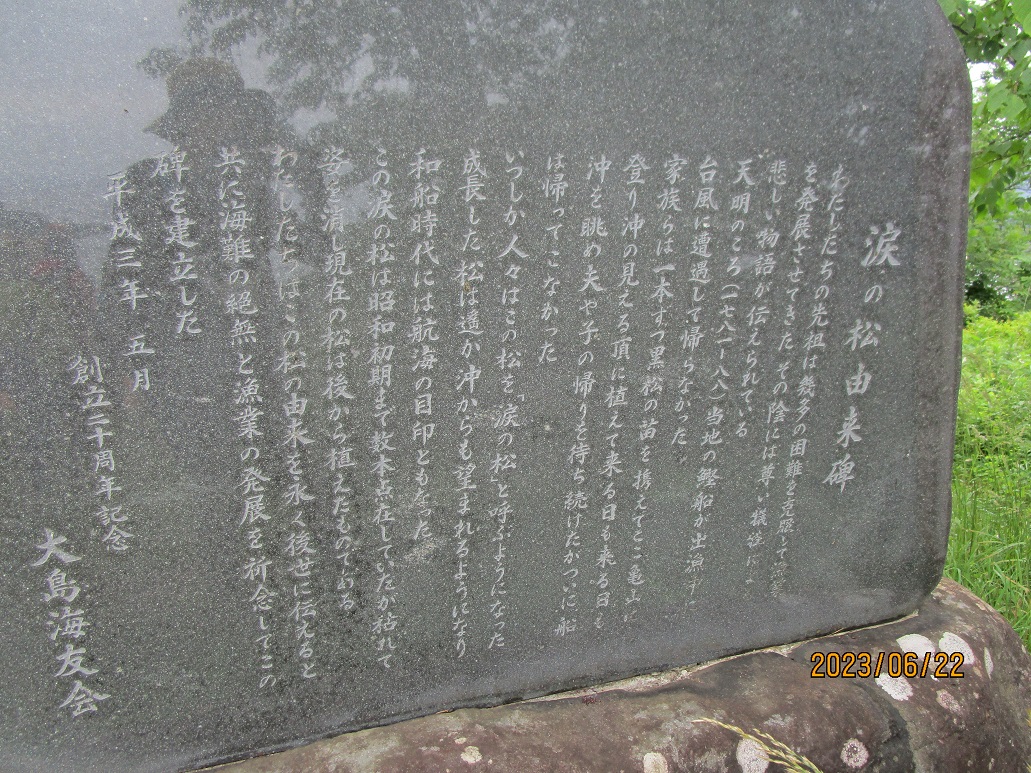 涙の松由来碑
わたしたちの先祖は幾多の困難を克服して漁業
を発展させてきたその陰には尊い犠牲による
悲しい物語が伝えられている
天明のころ(一七八一-八八)当地の鰹船が出漁中に
台風に遭遇して帰らなかった
家族らは一本ずつ黒松の苗を携えてここ亀山に
登り沖の見える頂に植えて来る日も来る日も
沖を眺め夫や子の帰りを待ち続けたがついに船
は帰ってこなかった
いつしか人々はこの松を「涙の松」と呼ぶようになった
成長した松は遥か沖からも望まれるようになり
和船時代には航海の目印ともなった
この涙の松は昭和初期まで数本点在していたが枯れて
姿を消し現在の松は後から植えたものである
わたしたちはこの松の由来を永く後世に伝えると
共に海難の絶無と漁業の発展を祈念してこの
碑を建立した
平成三年 五月
創立二十周年記念
大島海友会
2023/06/22